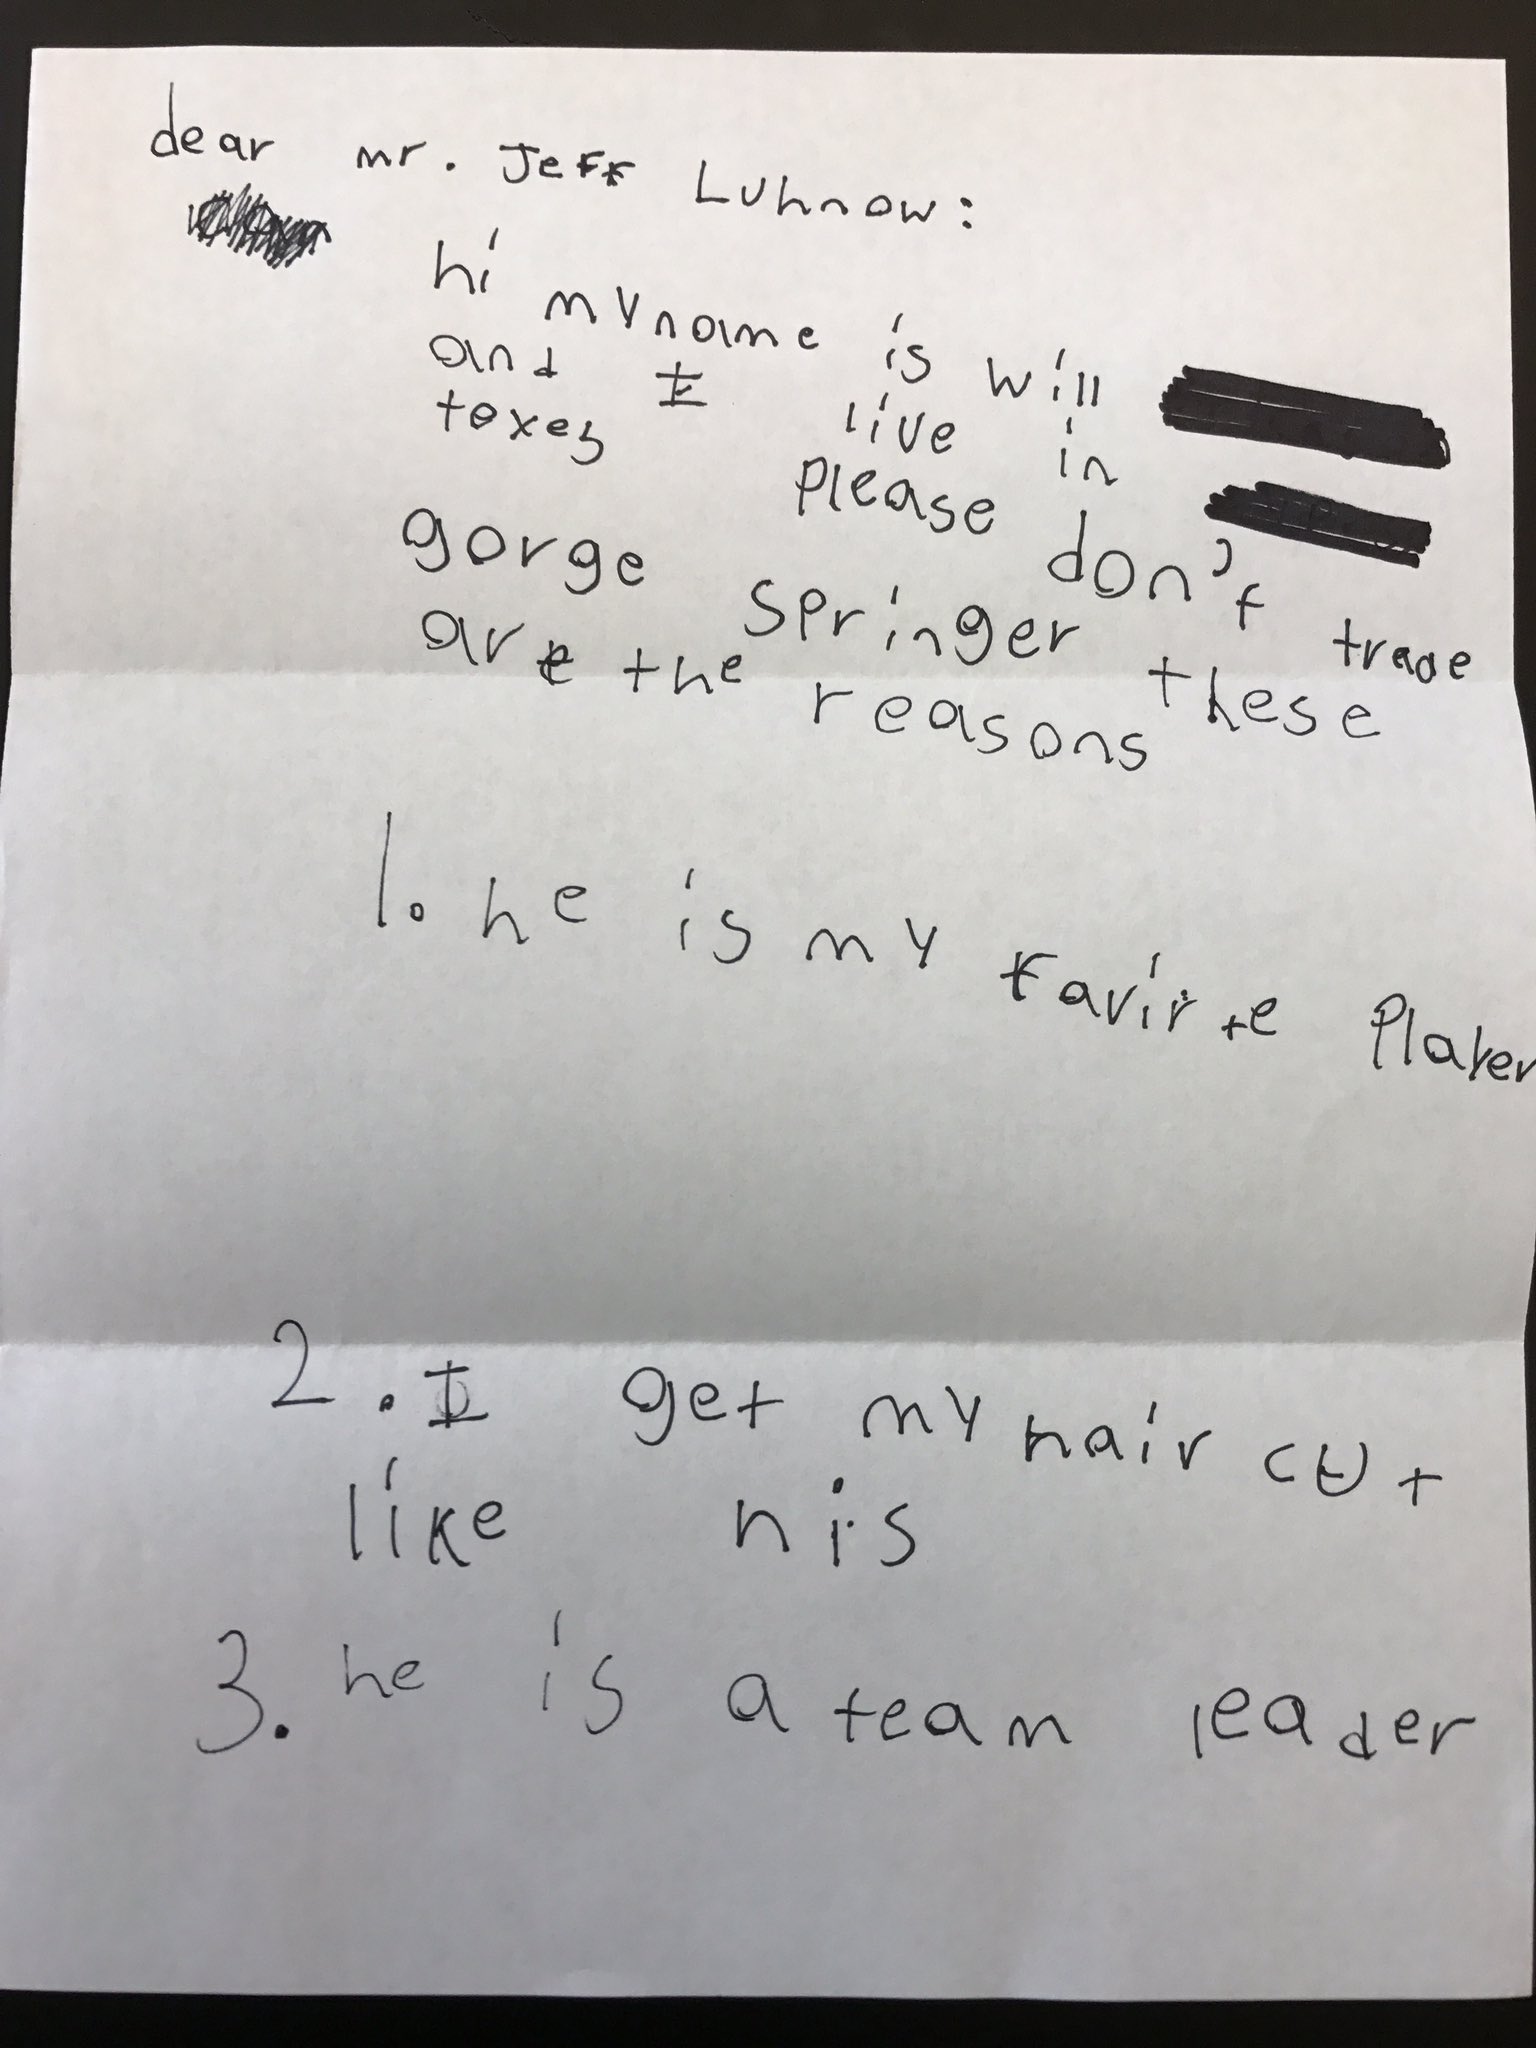 dear mr. Jeff Luhnow:
hi my name is will
and I live in
texes please don't trade
gorge Springer these
are the reasons
1. he is my favirte Player
2. I get my hair cut
like his
3. he is a team leader